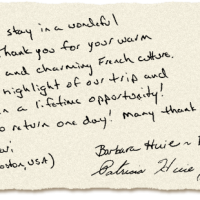 stay in a wonderful
thank you for your warm
and charming French culture.
highlight of our trip and
n a lifetime opportunity!
o return one day! Many thank
Barbara Huie ~
oston, USA)
Patricia Huie